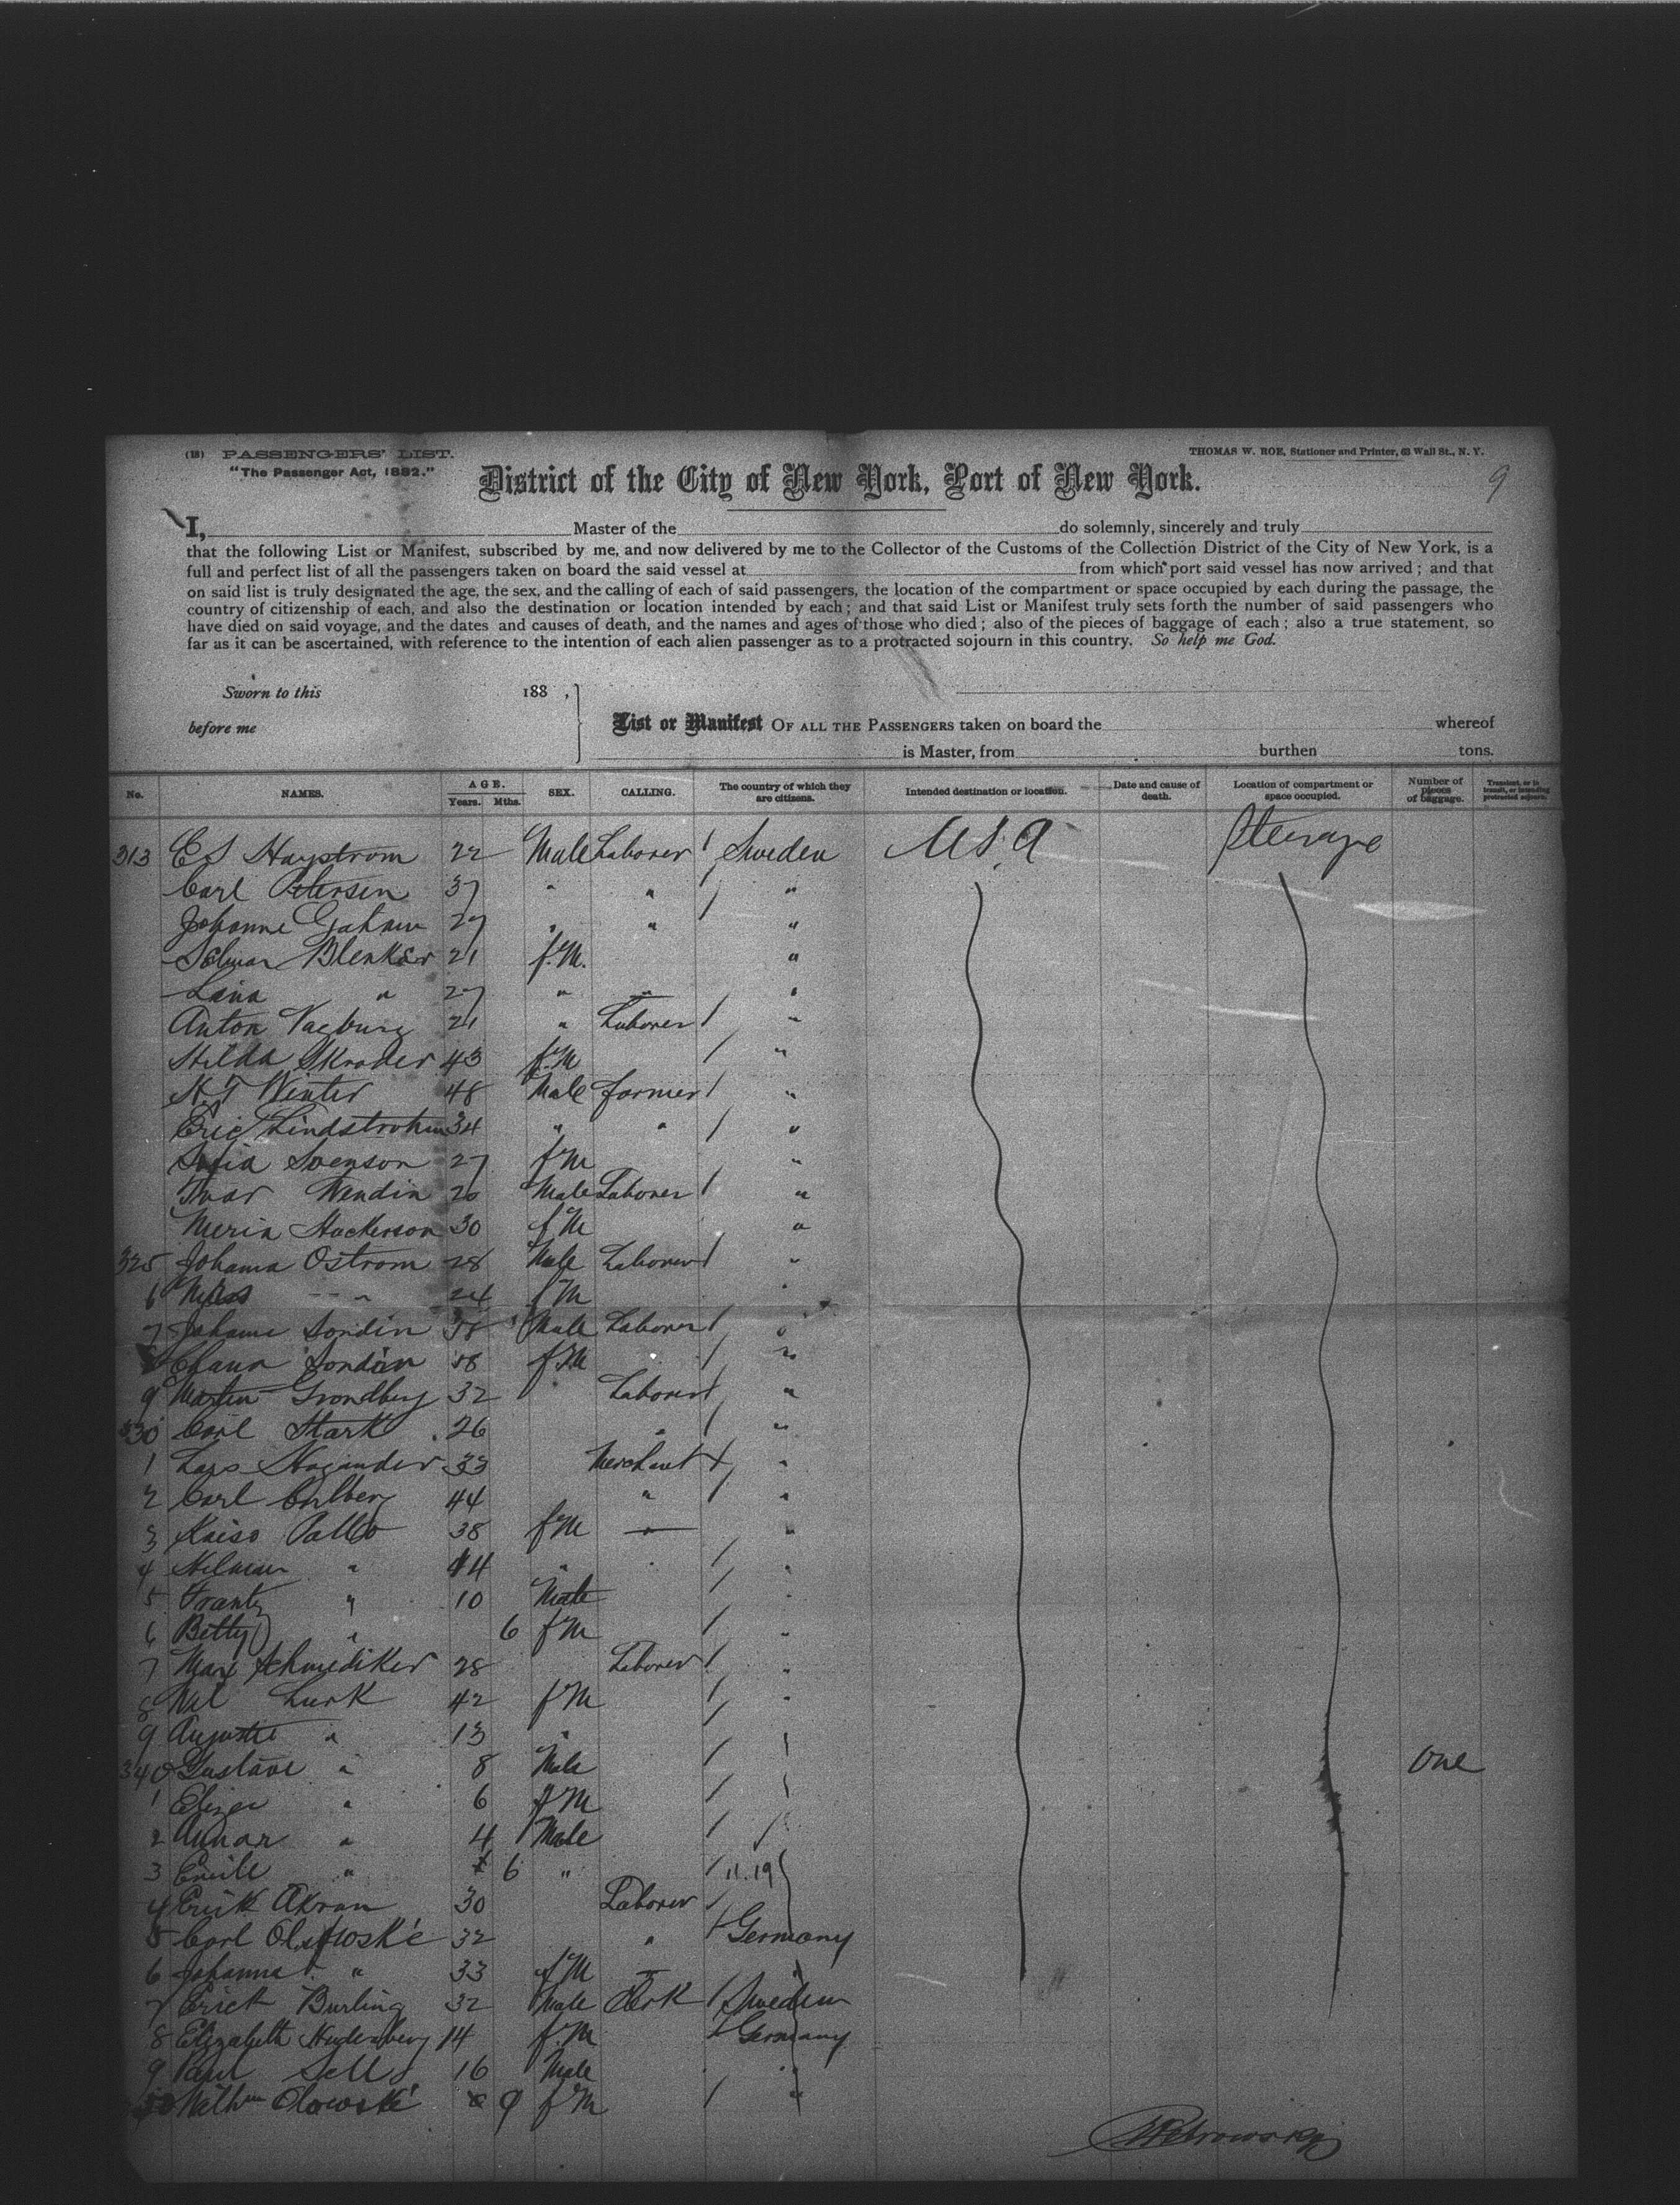 (18) PASSENGERS' LIST.
THOMAS W. ROE, Stationer and Printer, 63 Wall St., N. Y.
"The Passenger Act, 1882."
9
District of the City of New York, Port of New York.
I, Master of the do solemnly, sincerely and truly
that the following List or Manifest, subscribed by me, and now delivered by me to the Collector of the Customs of the Collection District of the City of New York, is a
full and perfect list of all the passengers taken on board the said vessel at from which port said vessel has now arrived; and that
on said list is truly designated the age, the sex, and the calling of each of said passengers, the location of the compartment or space occupied by each during the passage, the
country of citizenship of each, and also the destination or location intended by each; and that said List or Manifest truly sets forth the number of said passengers who
have died on said voyage, and the dates and causes of death, and the names and ages of those who died; also of the pieces of baggage of each; also a true statement, so
far as it can be ascertained, with reference to the intention of each alien passenger as to a protracted sojourn in this country. So help me God.
Sworn to this 188 ,
before me
List or Manifest OF ALL THE PASSENGERS taken on board the whereof
is Master, from burthen tons.
No. NAMES. AGE. Years. Mths. SEX. CALLING. The country of which they are citizens. Intended destination or location. Date and cause of death. Location of compartment or space occupied. Number of pieces of baggage. Transient, or in transit, or intending protracted sojourn.
313 E S Haystrom 22 Male Laborer / Sweden U.S.A Steerage
Carl Petersen 37 " " / "
Johanne 29 " " "
Selmar Blenker 21 f.M. "
Lana " 27 " "
Anton Vagburg 21 " Laborer / "
Hilda Skroder 43 f.M / "
N.T Winter 48 Male farmer / "
Eric Lindstrohm 34 " " / "
Sofia Svenson 27 f M "
Ivar Wendin 20 Male Laborer / "
Meria Hackerson 30 f M "
325 Johama Ostrom 28 Male Laborer / "
6 " 24 f M "
7 Johame Sondin 38 Male Laborer / "
8 Sondin f M / "
9 Martin Grondberg 32 Laborer / "
330 Carl Stark 26 " / "
1 Lars Hagander 33 Merchant + "
2 Carl Carlberg 44 " / "
3 Kaiso Pallo 38 f M — "
4 " 14 " / "
5 Frantz " 10 Male / "
6 Betty " 6 f M / "
7 Max Schmediker 28 Laborer / "
8 Lurk 42 f M / "
9 Auguste " 13 " /
340 Gustave " 8 Male / One
1 Eliza " 6 f M /
2 " 4 Male /
3 Emile " 6 " / 11.19
4 Erick Akran 30 Laborer /
5 Carl 32 " + Germany
6 Johanna " 33 f M —
7 Erick Burling 32 Male Clerk / Sweden
8 Elizabeth 14 f.M + Germany
9 Paul Sells 16 Male "
50 Olowské 9 f M / "